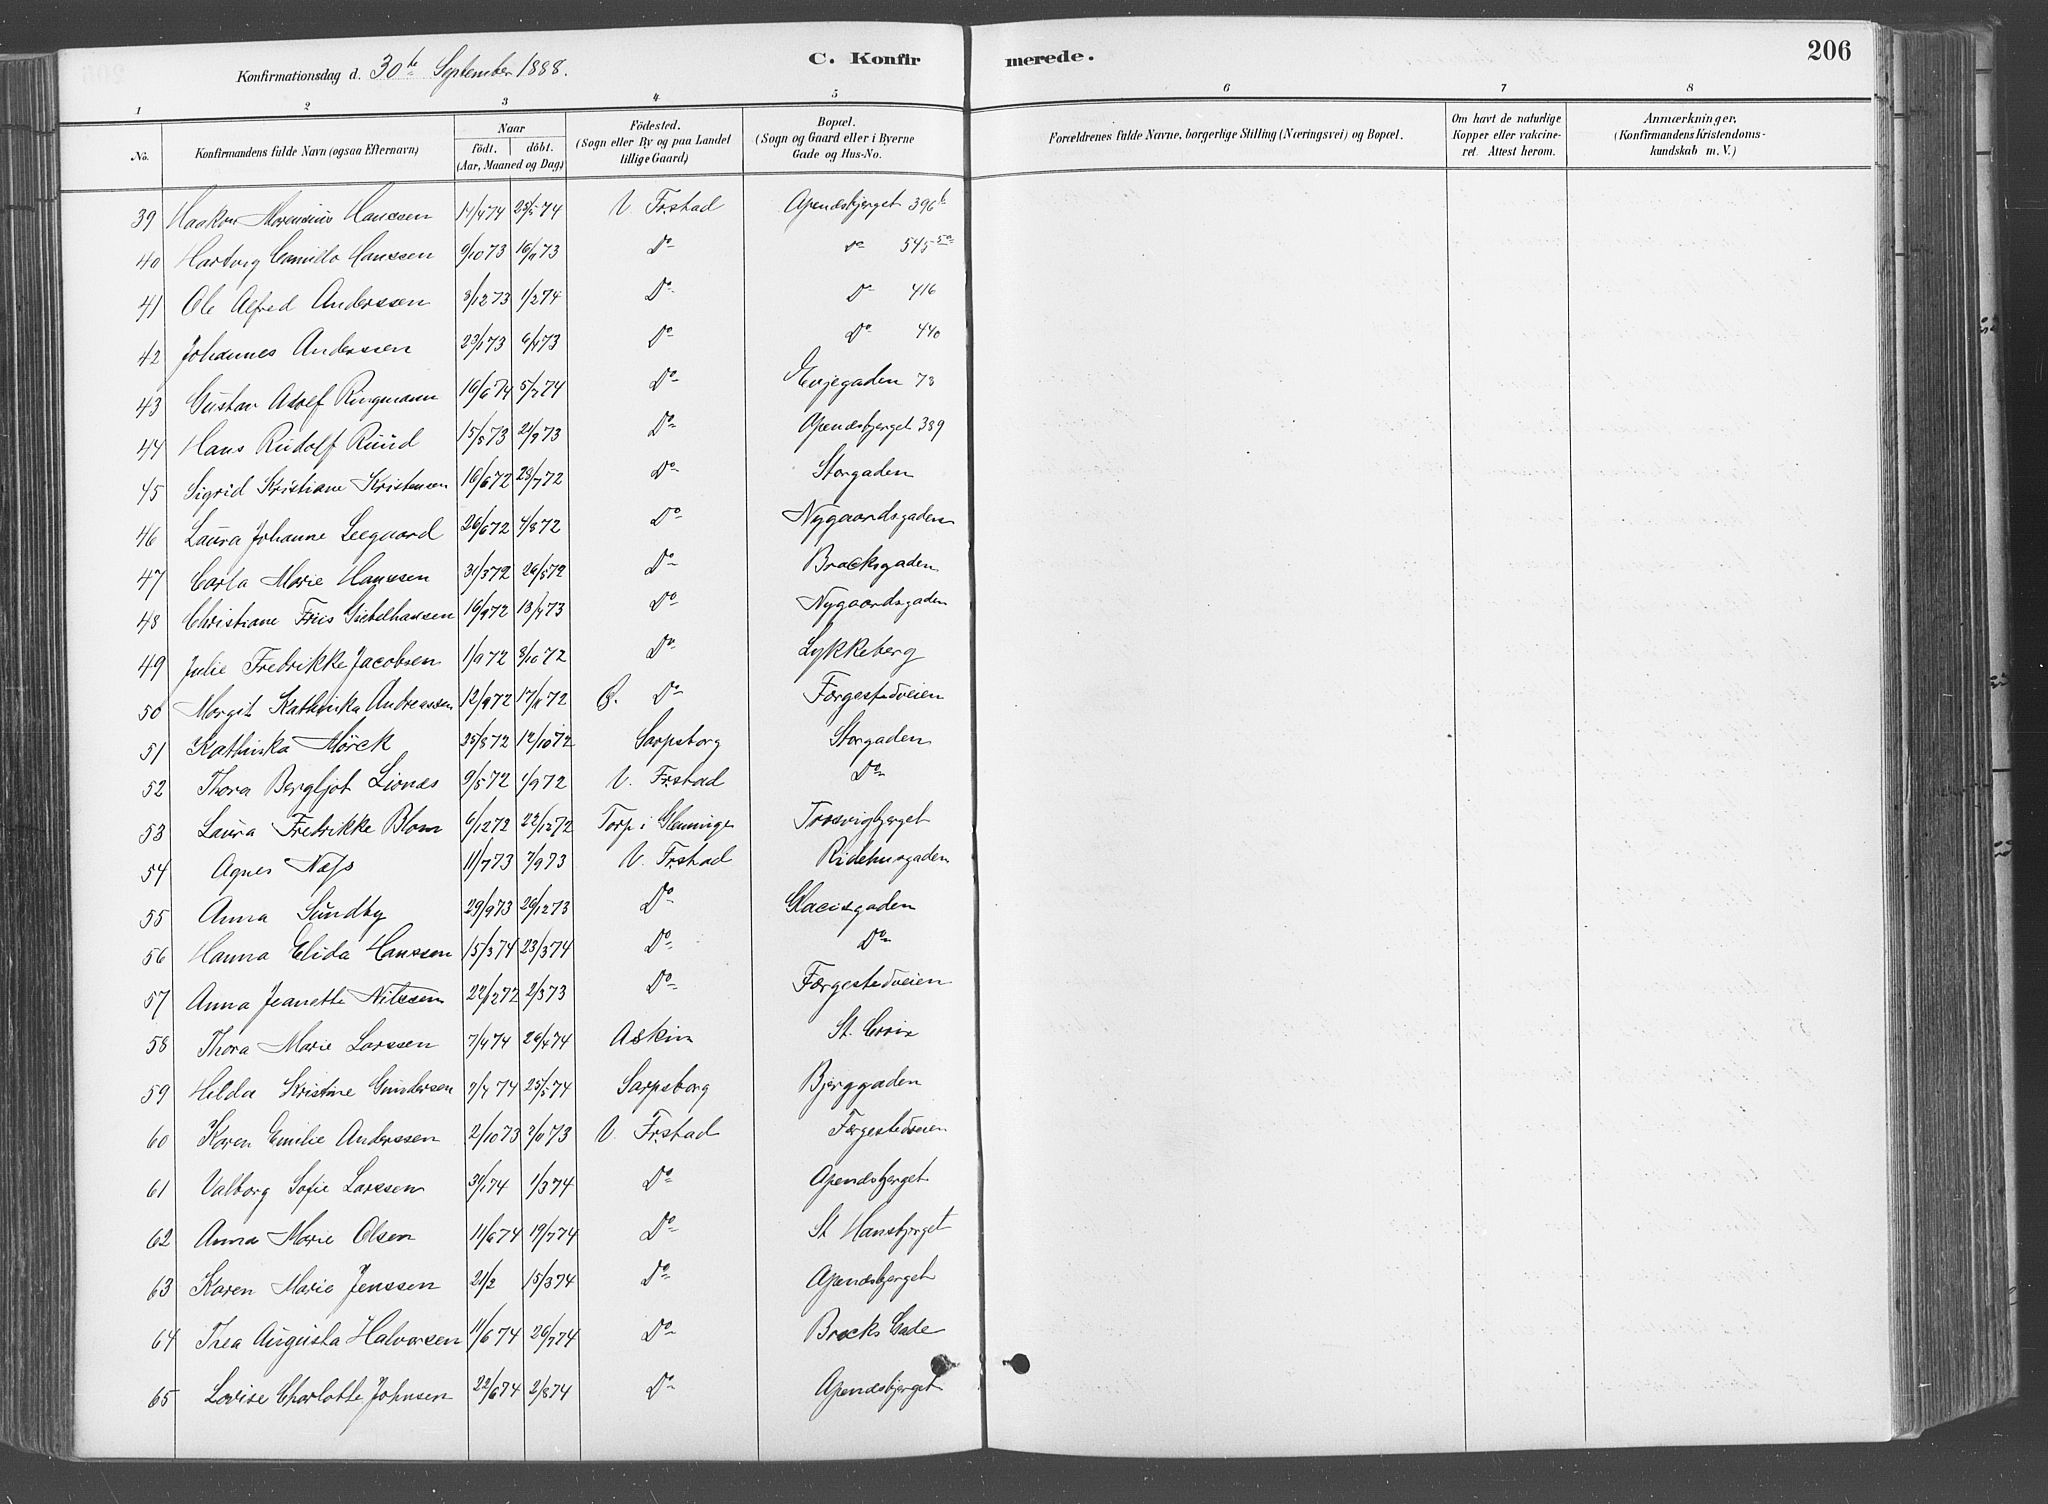 Konfirmationsdag d. 30te September 1888. C. Konfirmerede. 206
1 2 3 4 5 6 7 8
No. Konfirmandens fulde Navn (ogsaa Efternavn) Naar födt. döbt. (Aar, Maaned og Dag) Födested. (Sogn eller By og paa Landet tillige Gaard) Bopæl. (Sogn og Gaard eller i Byerne Gade og Hus-No. Forældrenes fulde Navne, borgerlige Stilling (Næringsvei) og Bopæl. Om havt de naturlige Kopper eller vakcineret. Attest herom. Anmærkninger, (Konfirmandens Kristendomskundskab m. V.)
39 Haakon Hanssen 14/474 25/574 V. Frstad Apenæsbjerget 396b
40 Hartvig Camillo Hanssen 9/1073 16/1173 Do Do 545
41 Ole Alfred Anderssen 3/1273 1/274 Do Do 416
42 Johannes Anderssen 23/173 6/473 Do Do 440
43 Gustav Adolf Ringmann 16/674 5/774 Do Evjegaden 73
44 Hans Rudolf Ruud 15/873 21/973 Do Apenæsbjerget 389
45 Sigrid Kristiane Kristensen 16/672 28/772 Do Storgaden
46 Laura Johanne Seegaard 26/672 4/872 Do Nygaardsgaden
47 Carla Marie Hanssen 31/372 26/572 Do Brocksgaden
48 Christiane Friis 16/972 13/473 Do Nygaardsgaden
49 Julie Fredrikke Jacobsen 1/972 3/1072 Do Lykkeberg
50 Margit Kathinka Andreassen 12/972 17/1172 Ø. Do Færgestedveien
51 Kathinka Mörck 25/872 12/1072 Sarpsborg Storgaden
52 Thora Bergljot Lionæs 9/572 1/972 V. Frstad Do
53 Laura Fredrikke Blom 6/1272 22/1272 Torp i Glemminge Trosvigbjerget
54 Agnes Næss 11/773 7/973 V. Frstad Ridehusgaden
55 Anna Sundby 29/973 26/1273 Do Glacisgaden
56 Hanna Elida Hanssen 15/374 23/374 Do Do
57 Anna Jeanette Nilssen 22/1272 2/373 Do Færgestedveien
58 Thora Marie Larssen 7/474 26/474 Askim St. Croix
59 Hilda Kristine Gundersen 7/474 25/574 Sarpsborg Bjerggaden
60 Karen Emilie Anderssen 2/1073 2/1173 V. Frstad Færgestedveien
61 Valborg Sofie Larssen 31/174 1/374 Do Apenæsbjerget
62 Anna Marie Olsen 11/674 19/774 Do St Hansbjerget
63 Karen Marie Jenssen 21/2 15/374 Do Apenæsbjerget
64 Thea Augusta Halvorsen 11/674 26/774 Do Brocks Gade
65 Lovise Charlotte Johnsen 22/674 2/874 Do Apenæsbjerget